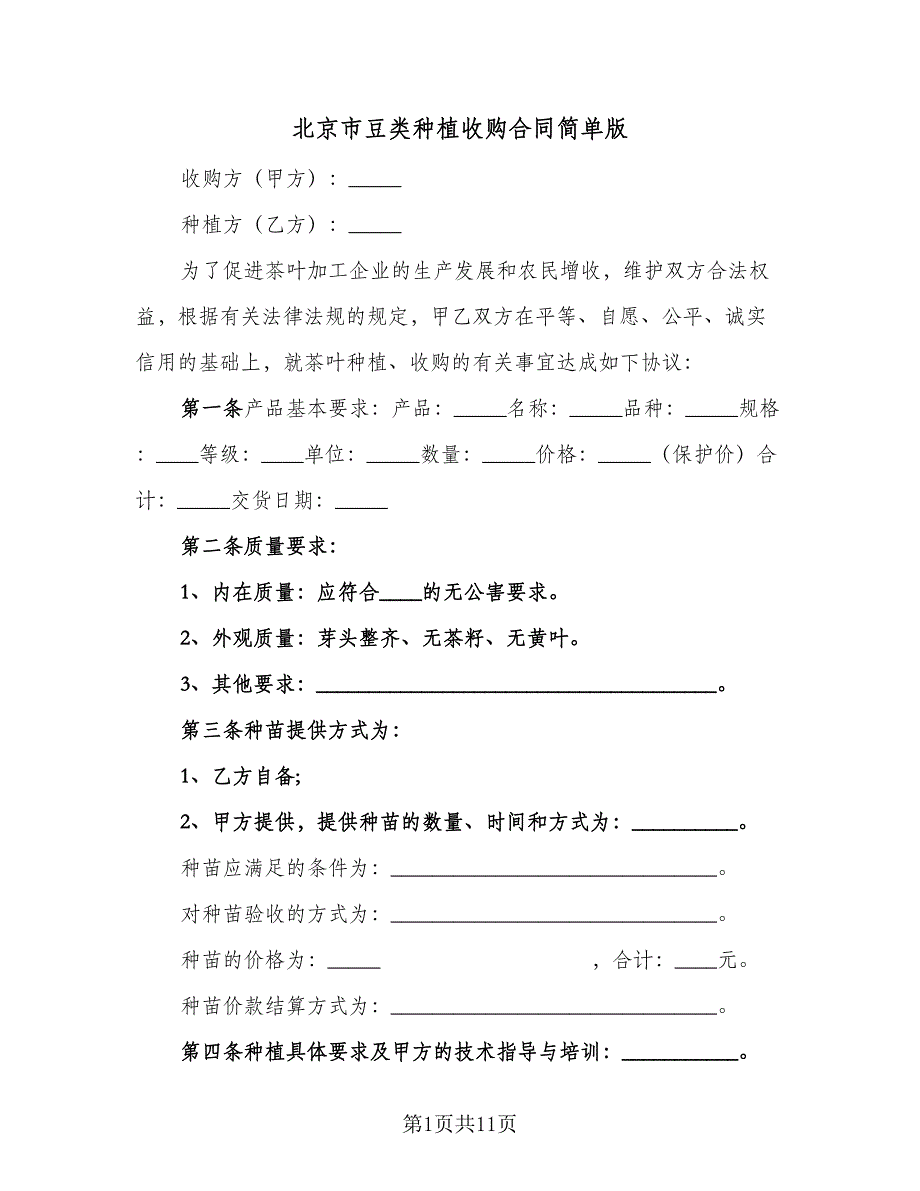 北京市豆类种植收购合同简单版
收购方（甲方）：_____
种植方（乙方）：_____
为了促进茶叶加工企业的生产发展和农民增收，维护双方合法权
益，根据有关法律法规的规定，甲乙双方在平等、自愿、公平、诚实
信用的基础上，就茶叶种植、收购的有关事宜达成如下协议：
第一条产品基本要求：产品：_____名称：_____品种：_____规格
：____等级：____单位：_____数量：_____价格：_____（保护价）合
计：_____交货日期：_____
第二条质量要求：
1、内在质量：应符合____的无公害要求。
2、外观质量：芽头整齐、无茶籽、无黄叶。
3、其他要求：______________________________________。
第三条种苗提供方式为：
1、乙方自备;
2、甲方提供，提供种苗的数量、时间和方式为：__________。
种苗应满足的条件为：_______________________________。
对种苗验收的方式为：_______________________________。
种苗的价格为：_____ ，合计：____元。
种苗价款结算方式为：_______________________________。
第四条种植具体要求及甲方的技术指导与培训：___________。
第1页共11页